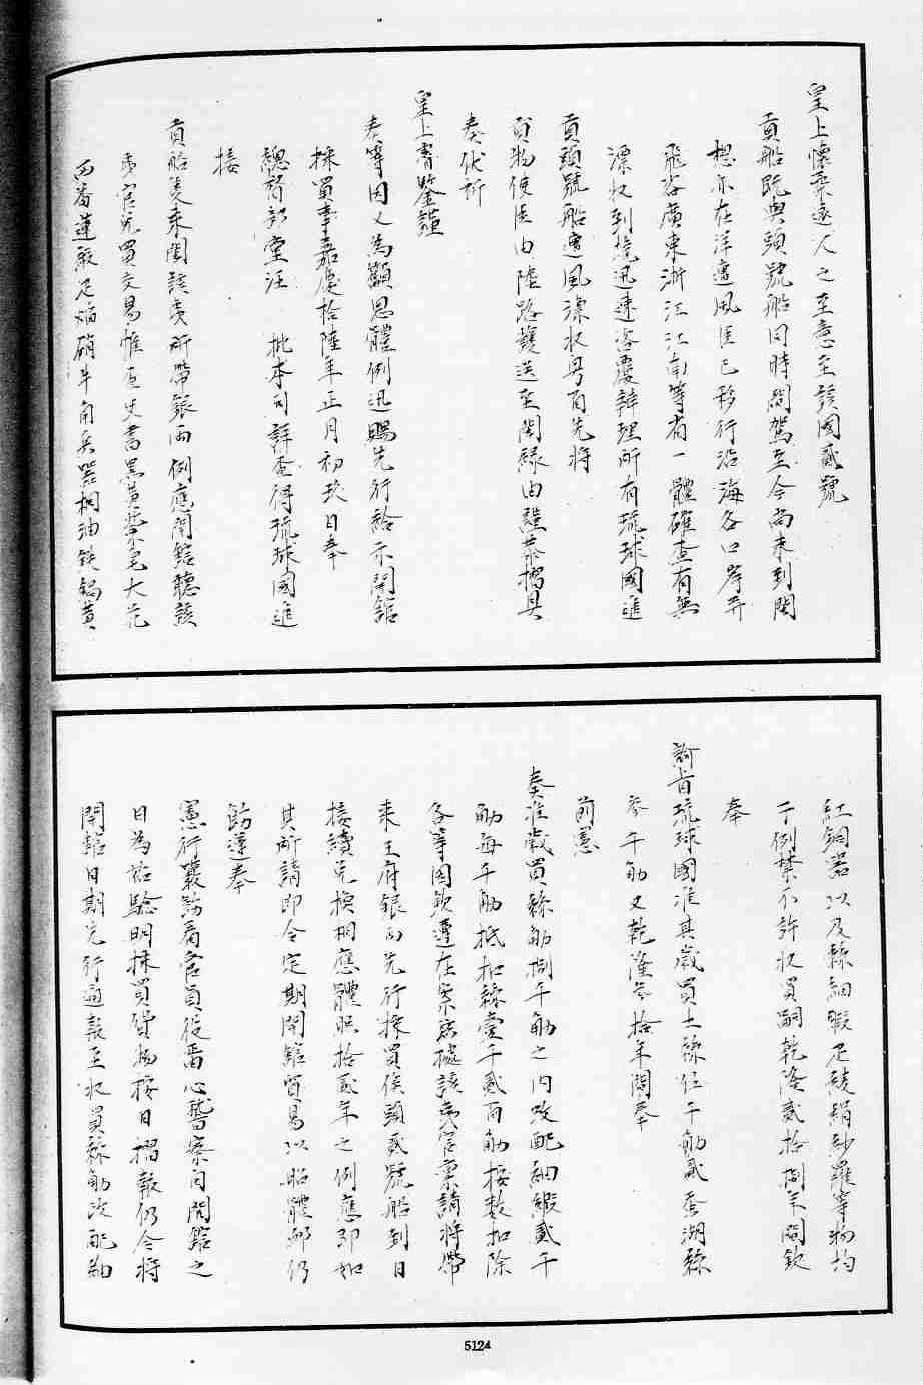 皇上懷柔遠人之至意至該國貳號
貢船既與頭號船同時開駕至今尚未到閩
想亦在洋遭風臣已移行沿海各口岸并
飛咨廣東浙江江南等省一體確查有無
漂收到境迅速咨覆辦理所有琉球國進
貢頭號船遭風漂收粵省先將
貢物使臣由陸路護送至閩緣由謹恭摺具
奏伏祈
皇上睿鑒謹
奏等因又為籲恩體例迅賜先行給示開館
採買事嘉慶拾陸年正月初玖日奉
總督部堂汪 批本司詳查得琉球國進
接
貢船隻來閩該夷所帶銀兩例應開館聽該
夷官兌買交易惟史書黑黃紫皂大花
西番蓮緞疋焰硝牛角兵器桐油鐵鍋黃
紅銅器以及絲綢緞疋綾絹紗羅等物均
干例禁不許收買嗣乾隆貳拾捌年間欽
奉
諭旨琉球國准其歲買土絲伍千觔貳蚕湖絲
參千觔又乾隆參拾年間奉
前憲
奏准歲買絲觔捌千觔之內改配綢緞貳千
觔每千觔抵扣絲壹千貳百觔按數扣除
各等因欽遵在案茲據該夷官稟請將帶
來王府銀兩先行採買俟頭貳號船到日
接續兌換相應體照拾貳年之例應即如
其所請即令定期開館貿易以昭體卹仍
飭遵奉
憲行襄防看官員從番心驚察自開館之
日為始驗明採買貨物按日摺報仍令將
開館日期先行通報至收買絲觔改配紬
5124